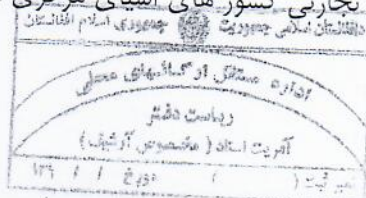 تجارتی کشور های آسیای مرکزی
دافغانستان اسلامی جمهوریت جمهوری اسلامی افغانستان
اداره مستقل ارگانهای محلی
ریاست دفتر
آمریت اسناد ( مخصوص آرشیف )
نمبر ثبت ( ) مورخ / / ۱۳۶